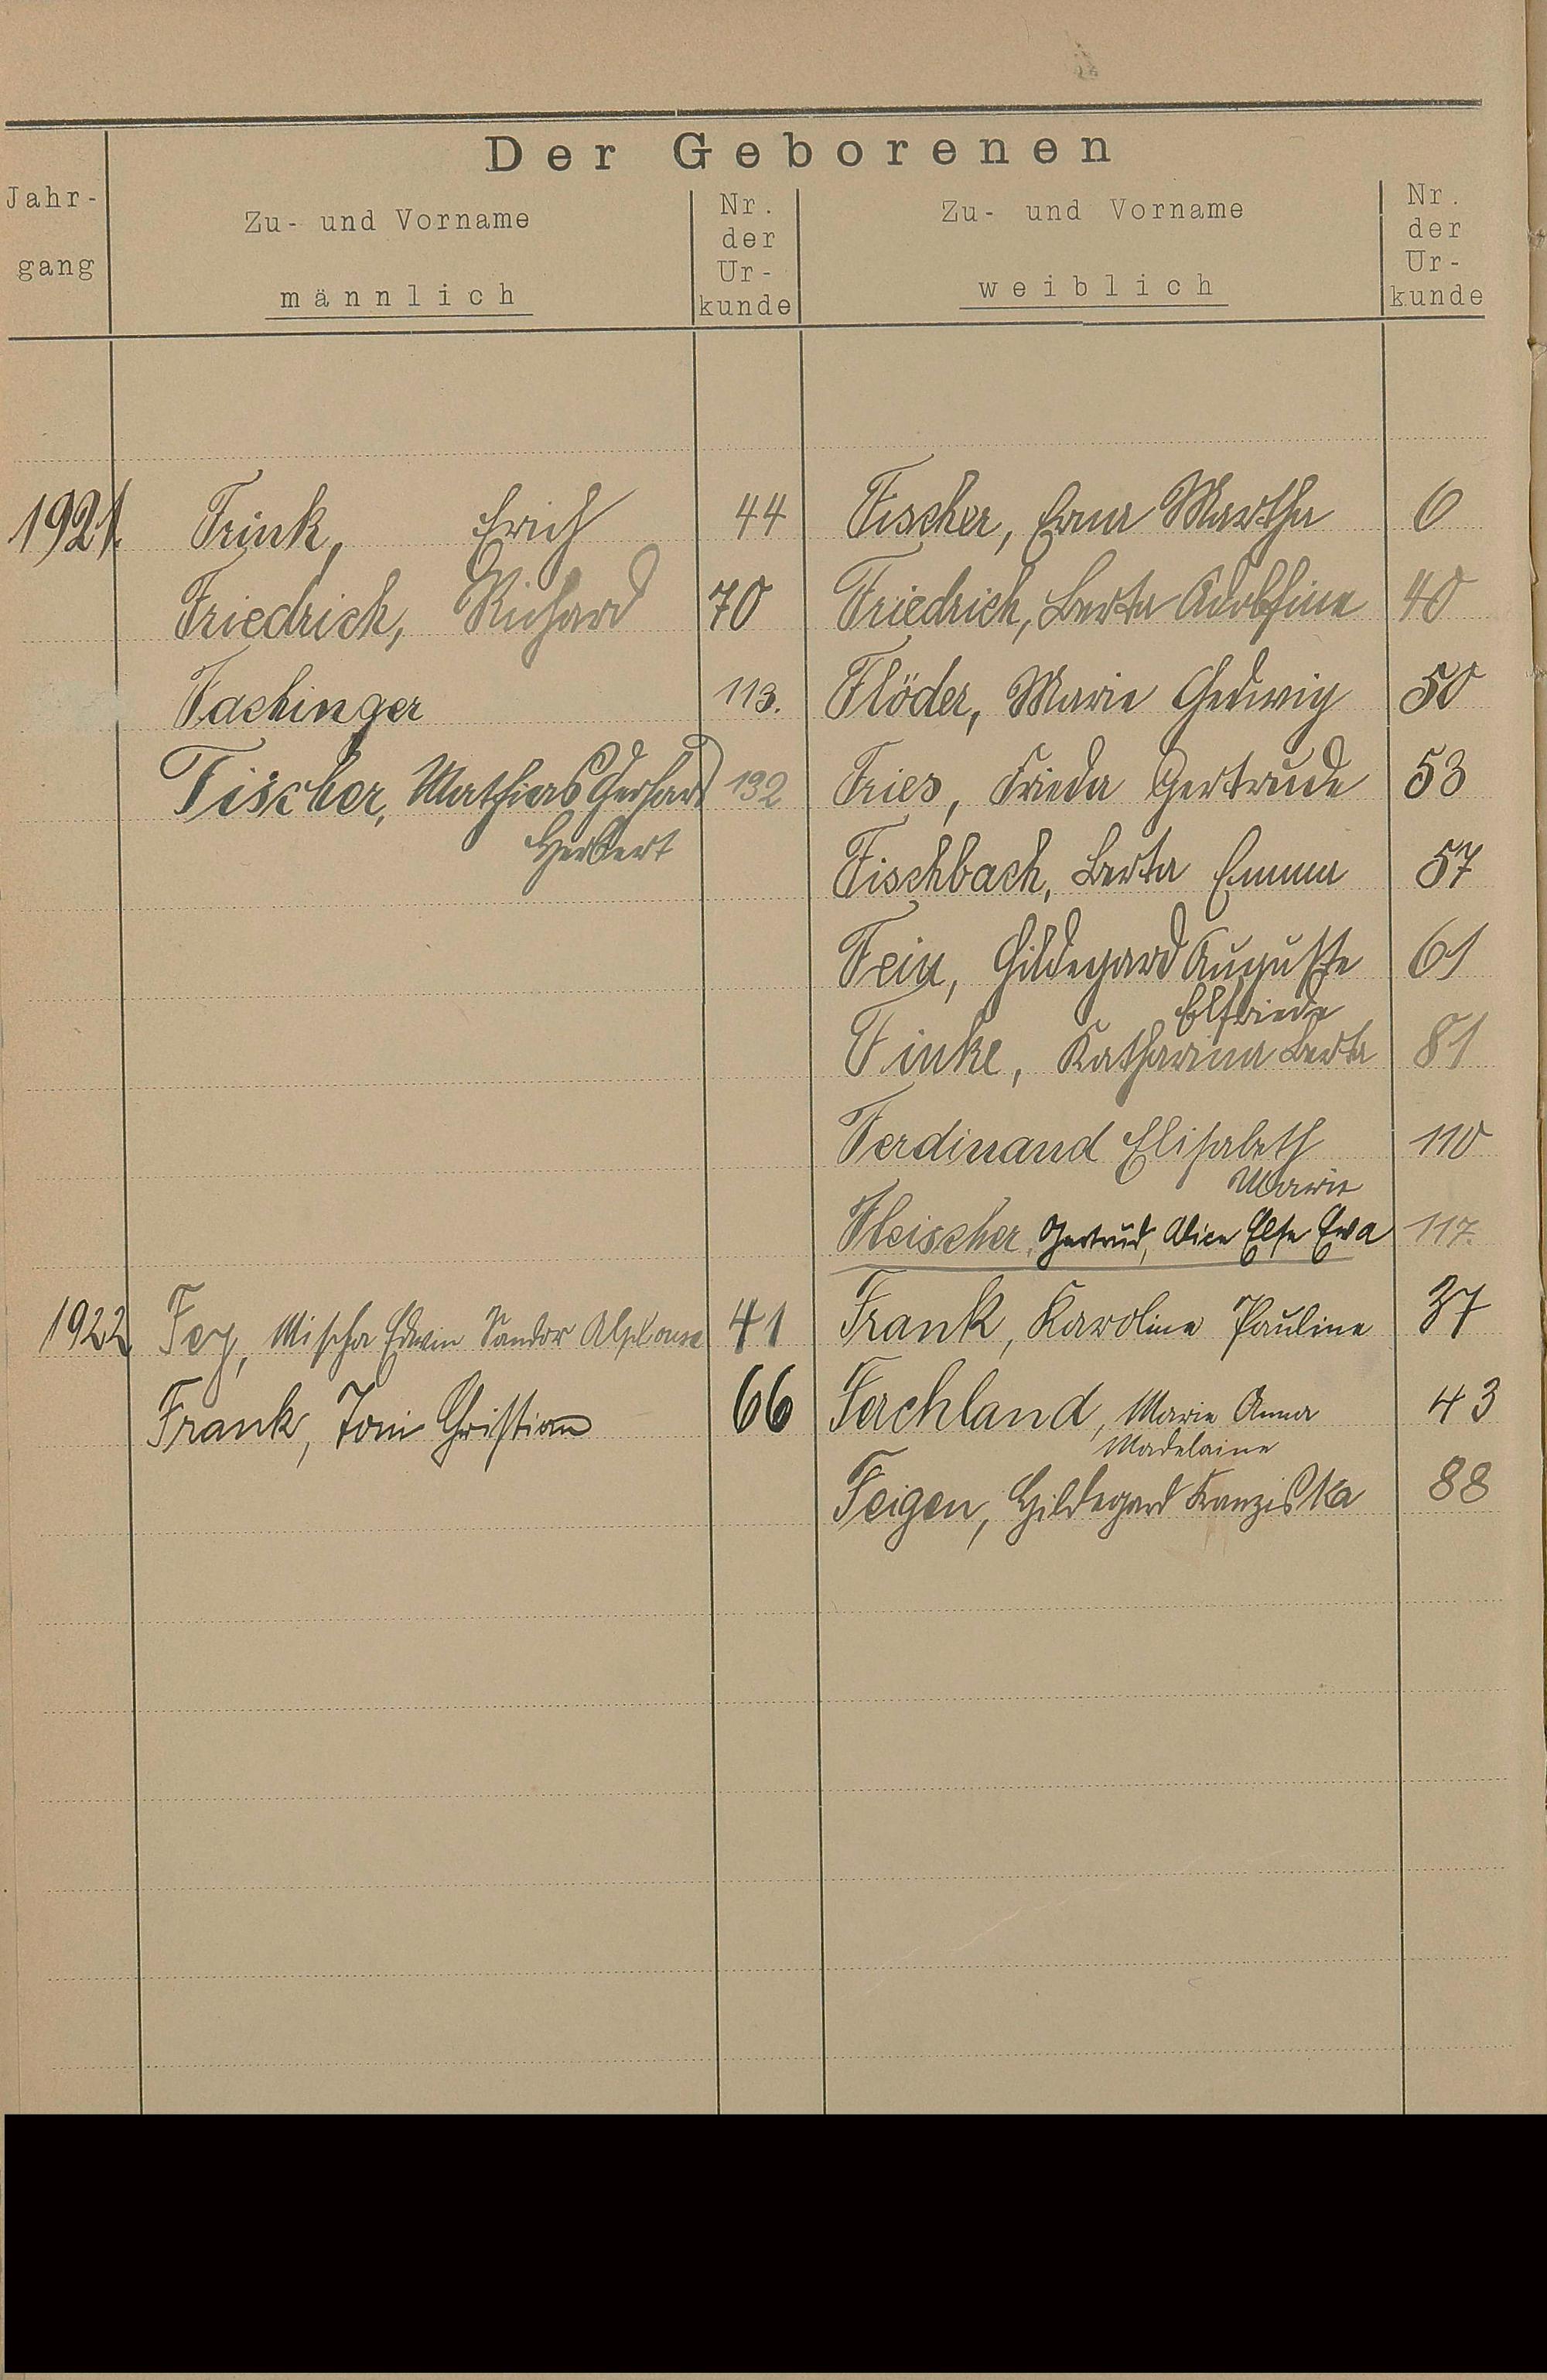 Der Geborenen
Jahr-
gang
Zu- und Vorname
männlich
Nr.
der
Ur-
kunde
Zu- und Vorname
weiblich
Nr.
der
Ur-
kunde
1921. Frink, Erich 44 Fischer, Erna Martha 6
Friedrich, Richard 70 Friedrich, Berta Adolfine 40
Fachinger 113. Flöder, Marie Hedwig 50
Fischer, Mathias Gerhard 132 Fries, Frieda Gertrude 53
Herbert
Fischbach, Berta Emma 57
Fein, Hildegard Auguste 61
Elfriede
Finke, Katharina Berta 81
Ferdinand Elisabeth 110
Marie
Fleischer, Gertrud, Alice Else Eva 117.
1922 Fey, Mischa Edwin Sandor Alphonse 41 Frank, Karoline Pauline 37
Frank, Toni Christian 66 Ferchland, Marie Anna 43
Madelaine
Feigen, Hildegard Franziska 88